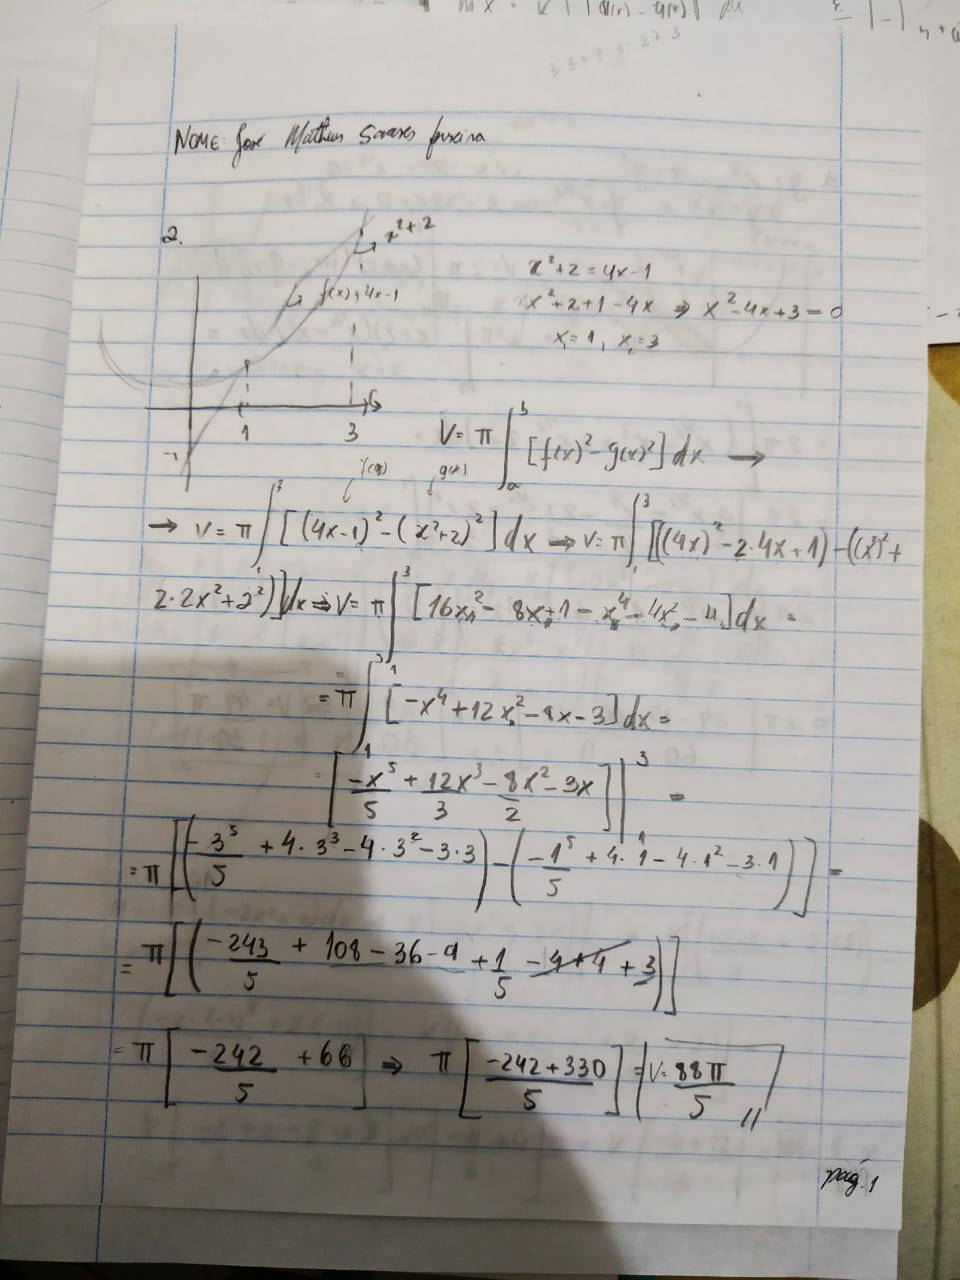 NOME: José Matheus Soares
2.
x²+2
f(x)=4x-1
x²+2 = 4x-1
x²+2+1-4x ⇒ x²-4x+3=0
x₁=1, x₂=3
1 3
-1
V= π ∫ₐᵇ [f(x)²-g(x)²]dx →
f(x) g(x)
→ V= π ∫₁³ [(4x-1)²-(x²+2)²]dx → V= π ∫₁³ [((4x)²-2·4x+1)-((x²)²+
2·2x²+2²)]dx ⇒ V= π ∫₁³ [16x²-8x+1-x⁴-4x²-4]dx =
= π ∫₁³ [-x⁴+12x²-8x-3]dx =
= [-x⁵/5 + 12x³/3 - 8x²/2 - 3x] |₁³ =
= π [(-3⁵/5 + 4·3³-4·3²-3·3)-(-1⁵/5 + 4·1-4·1²-3·1)] =
= π [(-243/5 + 108-36-9 + 1/5 -4+4+3)]
= π [-242/5 + 66] ⇒ π [(-242+330)/5] = V= 88π/5 //
pág. 1